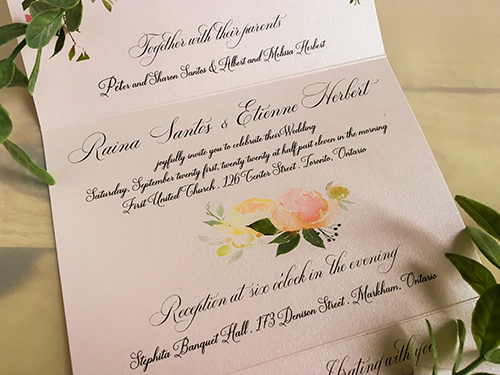 Together with their parents
Peter and Sharon Santos & Albert and Melissa Herbert
Raina Santos & Etienne Herbert
joyfully invite you to celebrate their Wedding
Saturday, September twenty first, twenty twenty at half past eleven in the morning
First United Church . 126 Center Street . Toronto, Ontario
Reception at six o'clock in the evening
Stephita Banquet Hall . 173 Denison Street . Markham, Ontario
with you